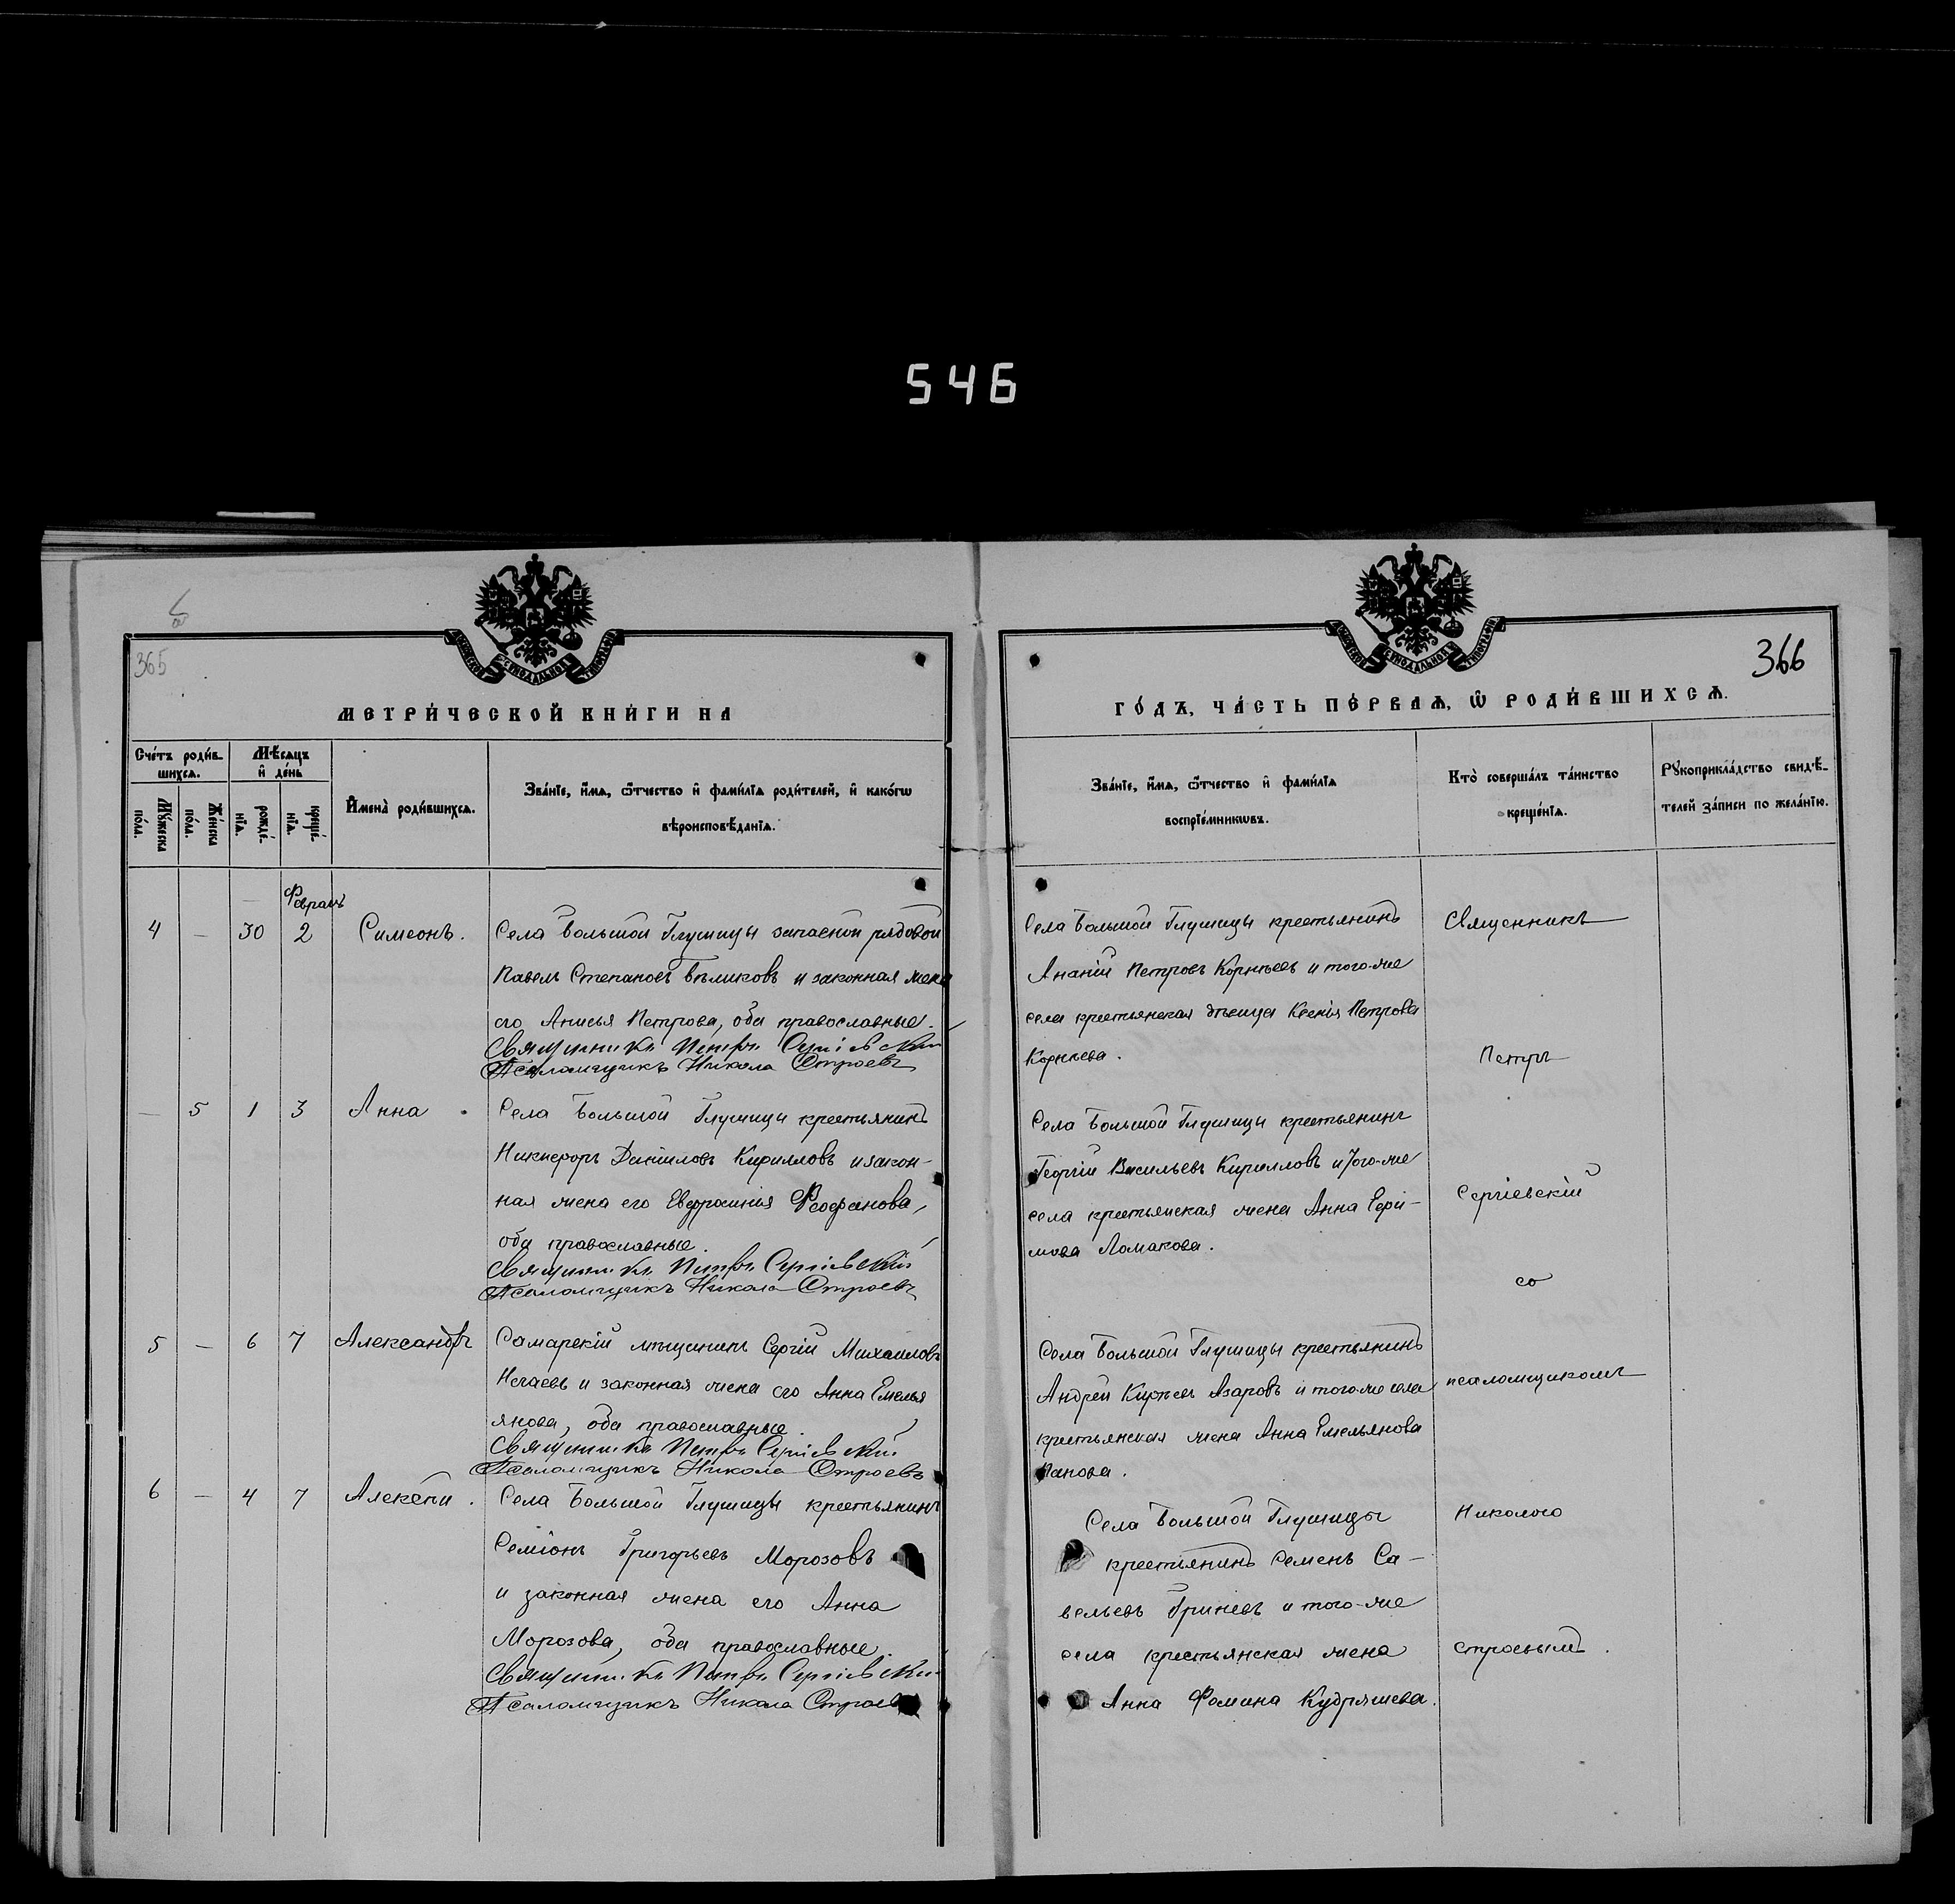 546
365
МЕТРИ́ЧЕСКОЙ КНИ́ГИ НА
Сче́тъ роди́в-
шихсѧ.
Мѣ́сѧцъ
и҆ де́нь
Мꙋ́жеска
по́ла.
Же́нска
по́ла.
рожде́-
нїѧ.
креще́-
нїѧ.
И҆мена̀ роди́вшихсѧ.
Зва́нїе, и҆́мѧ, ѻ҆́тчество и҆ фами́лїѧ роди́телей, и҆ како́гѡ
вѣроисповѣ́данїѧ.
Февраль
4 — 30 2 Симеонъ.
Села Большой Глушицы запасной рядовой
Павелъ Степановъ Бѣликовъ и законная жена
его Анисья Петрова, оба православные.
Священникъ Петръ Сергіевскій
Псаломщикъ Никола Строевъ
— 5 1 3 Анна.
Села Большой Глушицы крестьянинъ
Никифоръ Даниловъ Кирилловъ и закон-
ная жена его Евфросинія Феофанова,
оба православные.
Священникъ Петръ Сергіевскій
Псаломщикъ Никола Строевъ
5 — 6 7 Александръ
Самарскій мѣщанинъ Сергій Михаиловъ
Нечаевъ и законная жена его Анна Емелья
янова, оба православные.
Священникъ Петръ Сергіевскій
Псаломщикъ Никола Строевъ
6 — 4 7 Алексѣй.
Села Большой Глушицы крестьянинъ
Семіонъ Григорьевъ Морозовъ
и законная жена его Анна
Морозова, оба православные.
Священникъ Петръ Сергіевскій
Псаломщикъ Никола Строевъ
366
ГО́ДЪ, ЧА́СТЬ ПЕ́РВАѦ, Ѡ҆ РОДИ́ВШИХСѦ.
Зва́нїе, и҆́мѧ, ѻ҆́тчество и҆ фами́лїѧ
воспрїе́мникѡвъ.
Кто̀ соверша́лъ та́инство
креще́нїѧ.
Рꙋкоприкла́дство свидѣ́-
телей за́писи по жела́нїю.
Села Большой Глушицы крестьянинъ
Ананій Петровъ Корнѣевъ и того-же
села крестьянская дѣвица Ксенія Петрова
Корнѣева.
Села Большой Глушицы крестьянинъ
Георгій Васильевъ Кирилловъ и того-же
села крестьянская жена Анна
Ломакова.
Села Большой Глушицы крестьянинъ
Андрей Азаровъ и того-же села
крестьянская жена Анна Емельянова
Панова.
Села Большой Глушицы
крестьянинъ Семенъ Са-
вельевъ Гриневъ и того-же
села крестьянская жена
Анна Фомина Кудряшева.
Священникъ
Петръ
Сергіевскій
со
псаломщикомъ
Николою
Строевымъ.